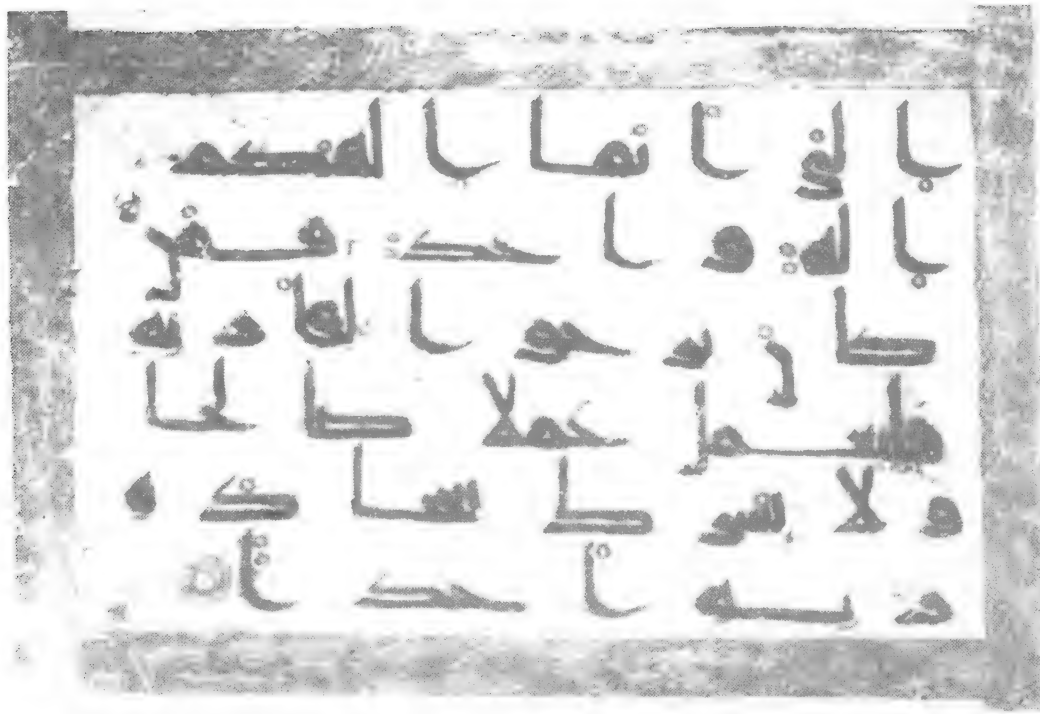 الي انما الهكم
اله واحد فمن
كان يرجوا لقا ربه
فليعمل عملا صالحا
ولا يشرك بعبادة
ربه احدا